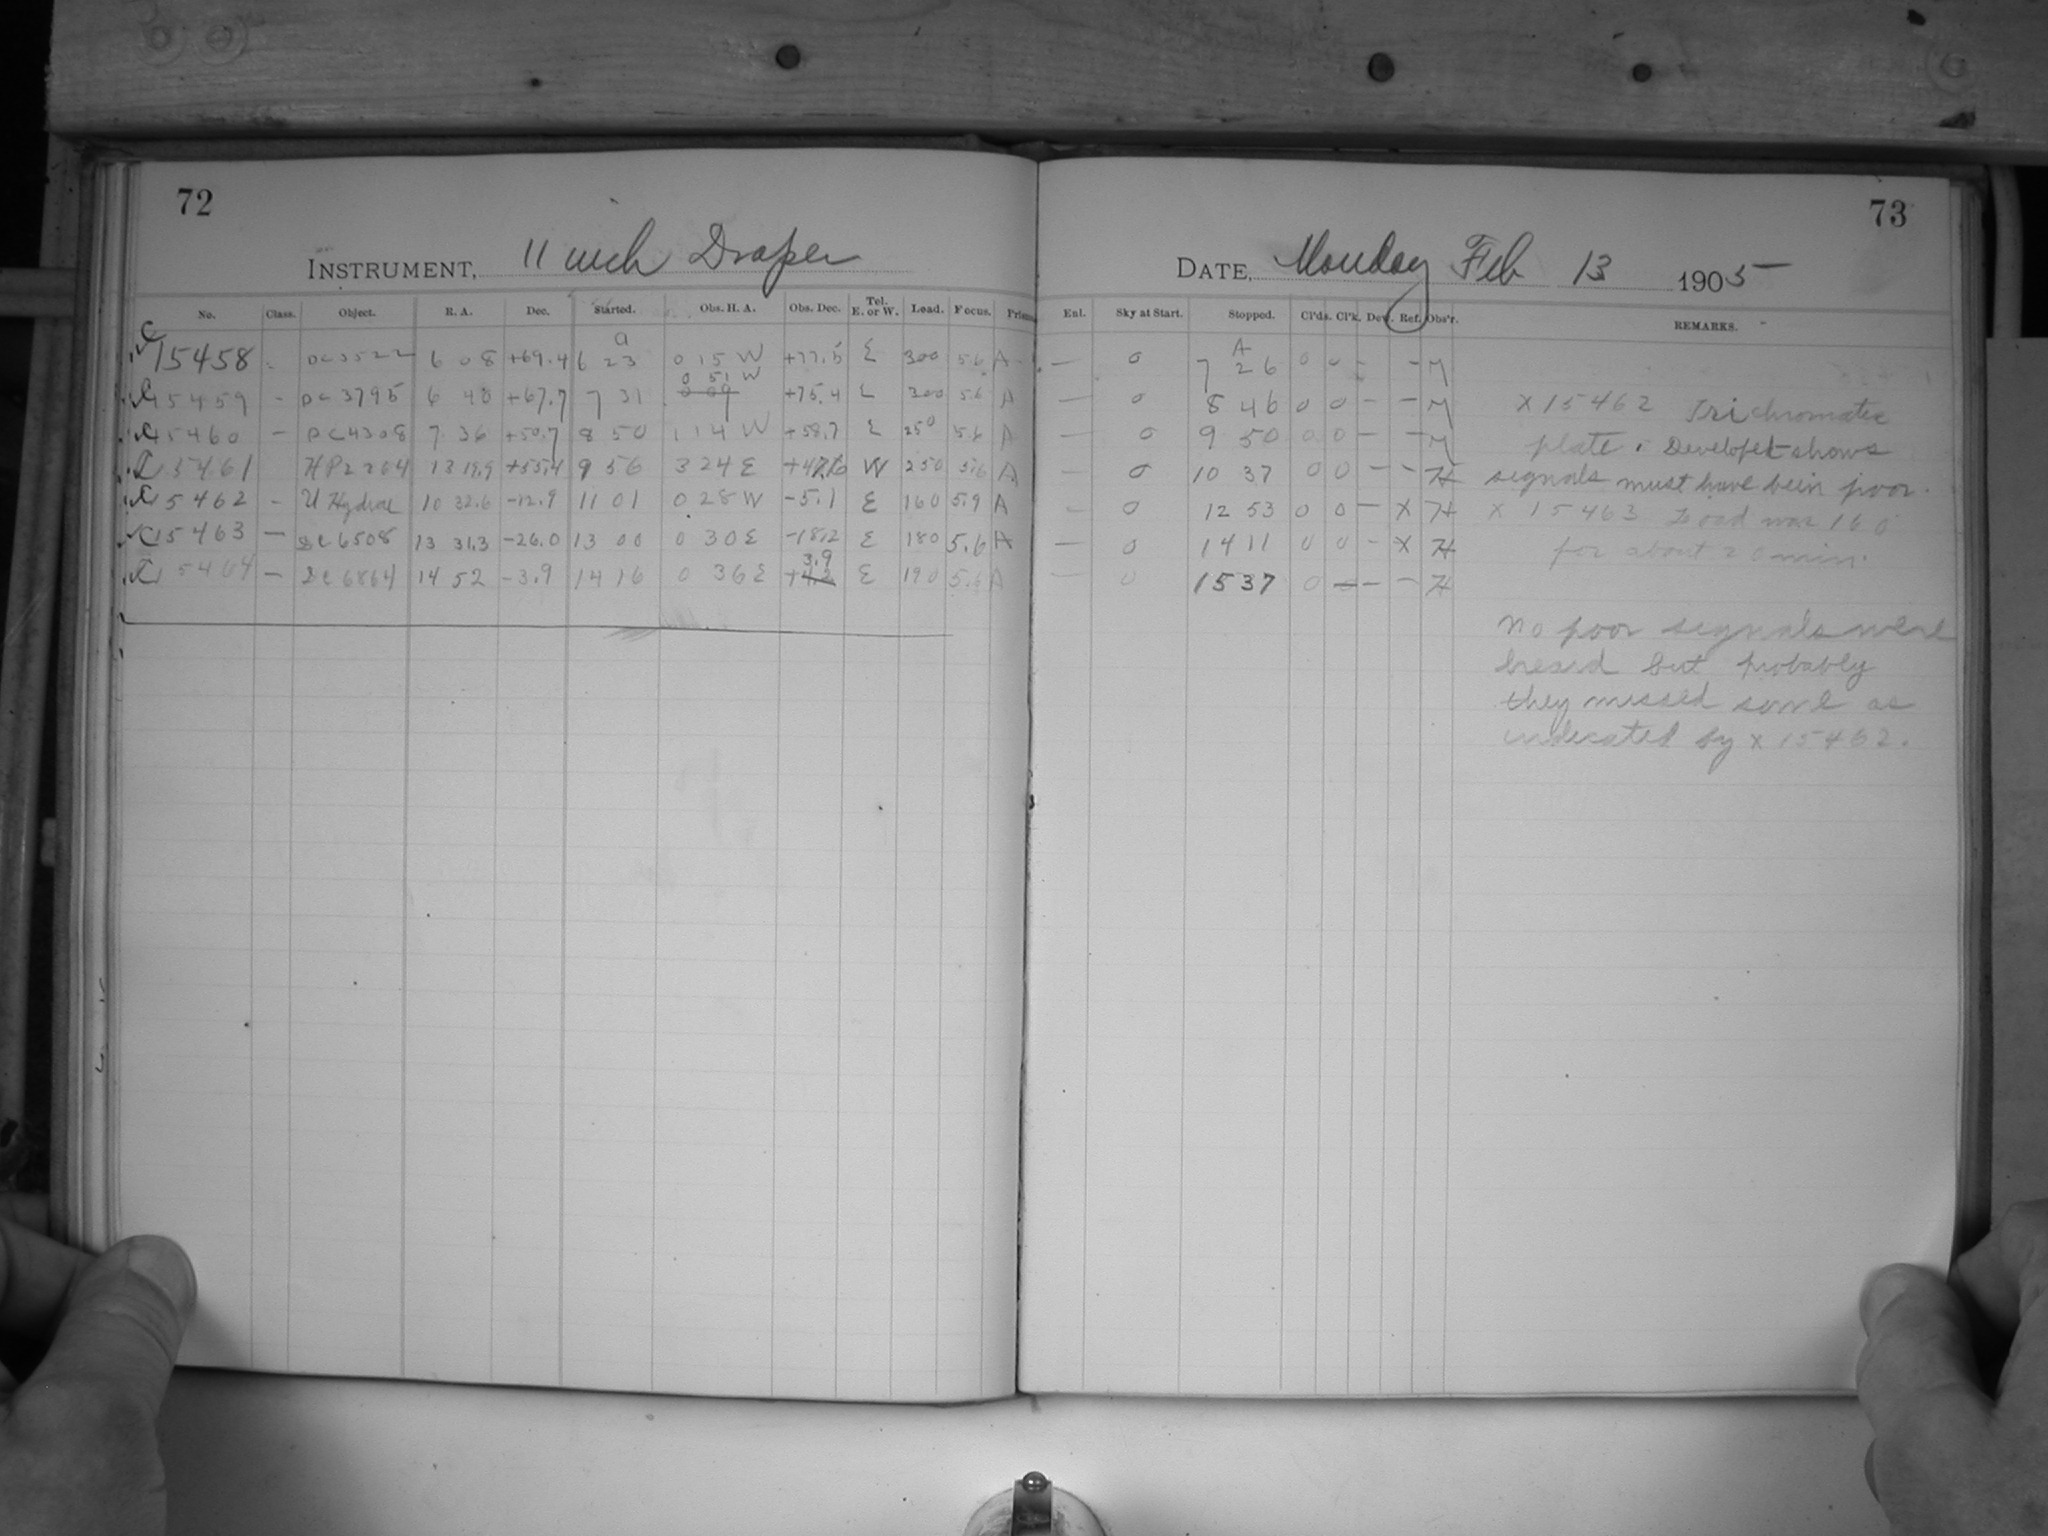 72
INSTRUMENT, 11 inch Draper
No. Class. Object. R. A. Dec. Started. Obs. H. A. Obs. Dec. Tel. E. or W. Load. Focus. Prism
C 15458 - DC3522 6 08 +69.4 a 6 23 0 15 W +77.5 E 300 5.6 A
C 15459 - DC 3795 6 40 +67.7 7 31 0 51 W +75.4 E 300 5.6 A
C 15460 - DC4308 7 36 +50.7 8 50 1 14 W +58.7 E 250 5.6 A
C 15461 HP2264 13 19.9 +55.4 9 56 3 24 E +47.6 W 250 5.6 A
C 15462 - U Hydrae 10 32.6 -12.9 11 01 0 28 W -5.1 E 160 5.9 A
C 15463 - DC6508 13 31.3 -26.0 13 00 0 30 E -18.2 E 180 5.6 A
C 15464 - DC6864 14 52 -3.9 14 16 0 36 E +3.9 E 190 5.6 A
73
DATE, Monday Feb 13 1905
Enl. Sky at Start. Stopped. Cl'ds. Cl'k. Dew. Ref. Obs'r. REMARKS.
— 0 A 7 26 0 0 - - M
— 0 8 46 0 0 - - M
— 0 9 50 0 0 - - M
— 0 10 37 0 0 - - H
— 0 12 53 0 0 - X H
— 0 14 11 0 0 - X H
— 0 15 37 0 - - - H
X 15462 Trichromatic
plate. Developed shows
signals must have been poor.
X 15463 Load was 160
for about 20 min.
No poor signals were
heard but probably
they missed some as
indicated by X 15462.